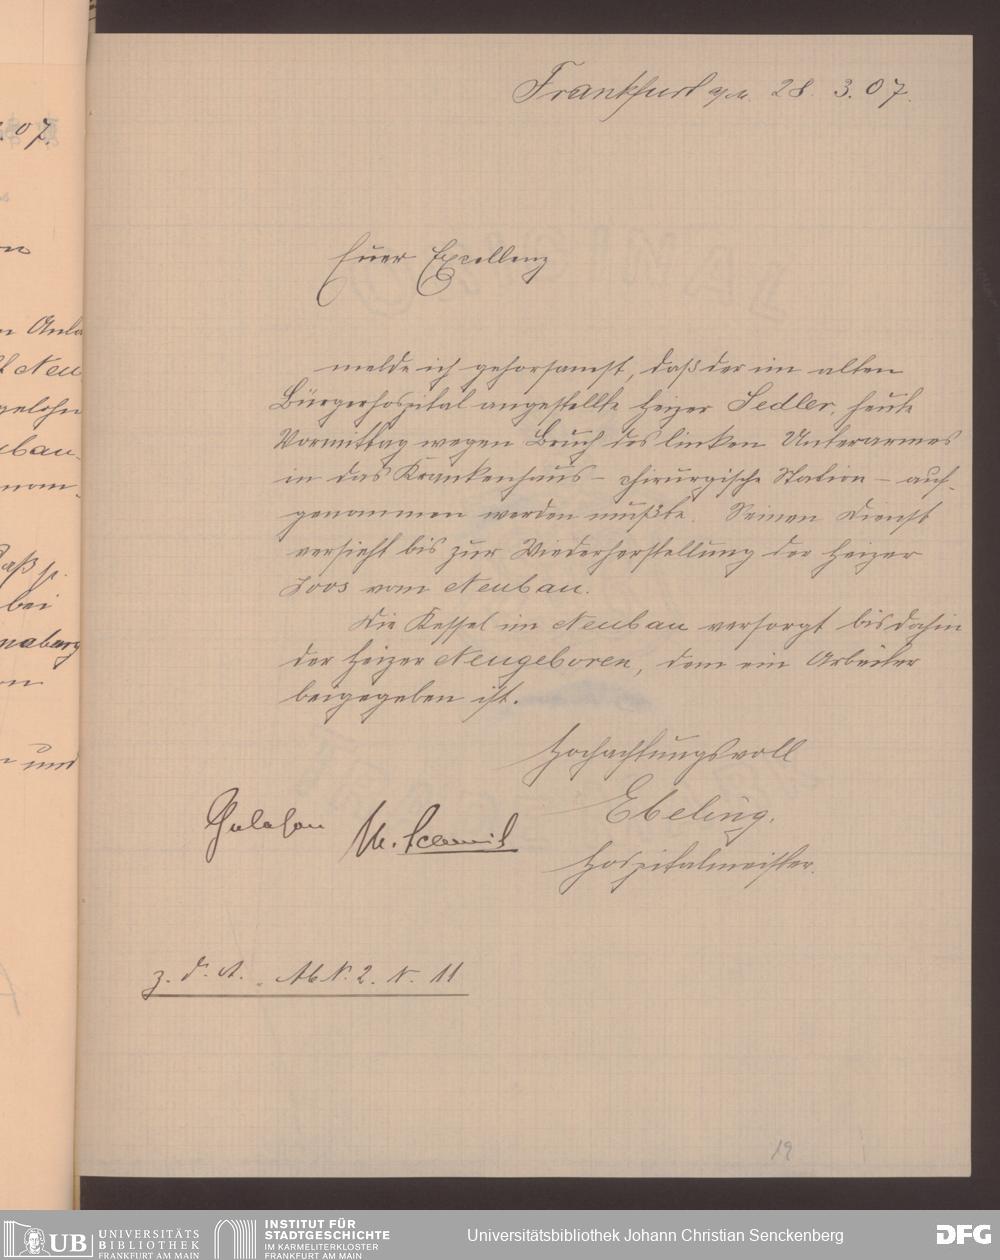 Frankfurt a/M. 28. 3. 07.
Euer Excellenz
melde ich gehorsamst, daß der im alten
Bürgerhospital angestellte Heizer Sedler, heute
Vormittag wegen Bruch des linken Unterarmes
in das Krankenhaus - chirurgische Station - auf-
genommen werden mußte. Seinen Dienst
versieht bis zur Wiederherstellung der Heizer
Joos vom Neubau.
Die Kessel im Neubau versorgt bis dahin
der Heizer Neugeboren, dem ein Arbeiter
beigegeben ist.
Hochachtungsvoll
Ebeling.
Hospitalmeister.
Gelesen
z. d. A. Abt. 2. N. 11
19
.07.
on
n Anla
Neu
gelohn
bau-
nom-
daß p.
bei
on
und
UB UNIVERSITÄTS
BIBLIOTHEK
FRANKFURT AM MAIN
INSTITUT FÜR
STADTGESCHICHTE
IM KARMELITERKLOSTER
FRANKFURT AM MAIN
Universitätsbibliothek Johann Christian Senckenberg
DFG